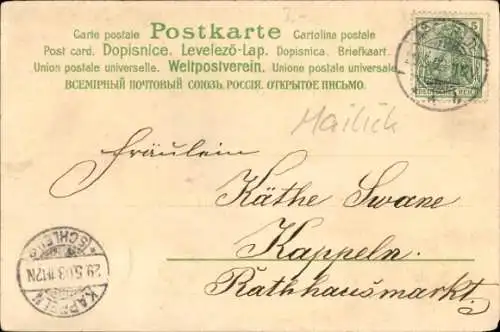 Carte postale Postkarte Cartolina postale
Post card. Dopisnice. Levelező-Lap. Dopisnica. Briefkaart.
Union postale universelle. Weltpostverein. Unione postale universale
ВСЕМІРНЫЙ ПОЧТОВЫЙ СОЮЗЪ. РОССІЯ. ОТКРЫТОЕ ПИСЬМО.
5
DEUTSCHES REICH
Mailick
Fräulein
Käthe Swane
Kappeln.
Rathhausmarkt.
(SCHLEI)
29.5.03.11-12N
KAPPELN